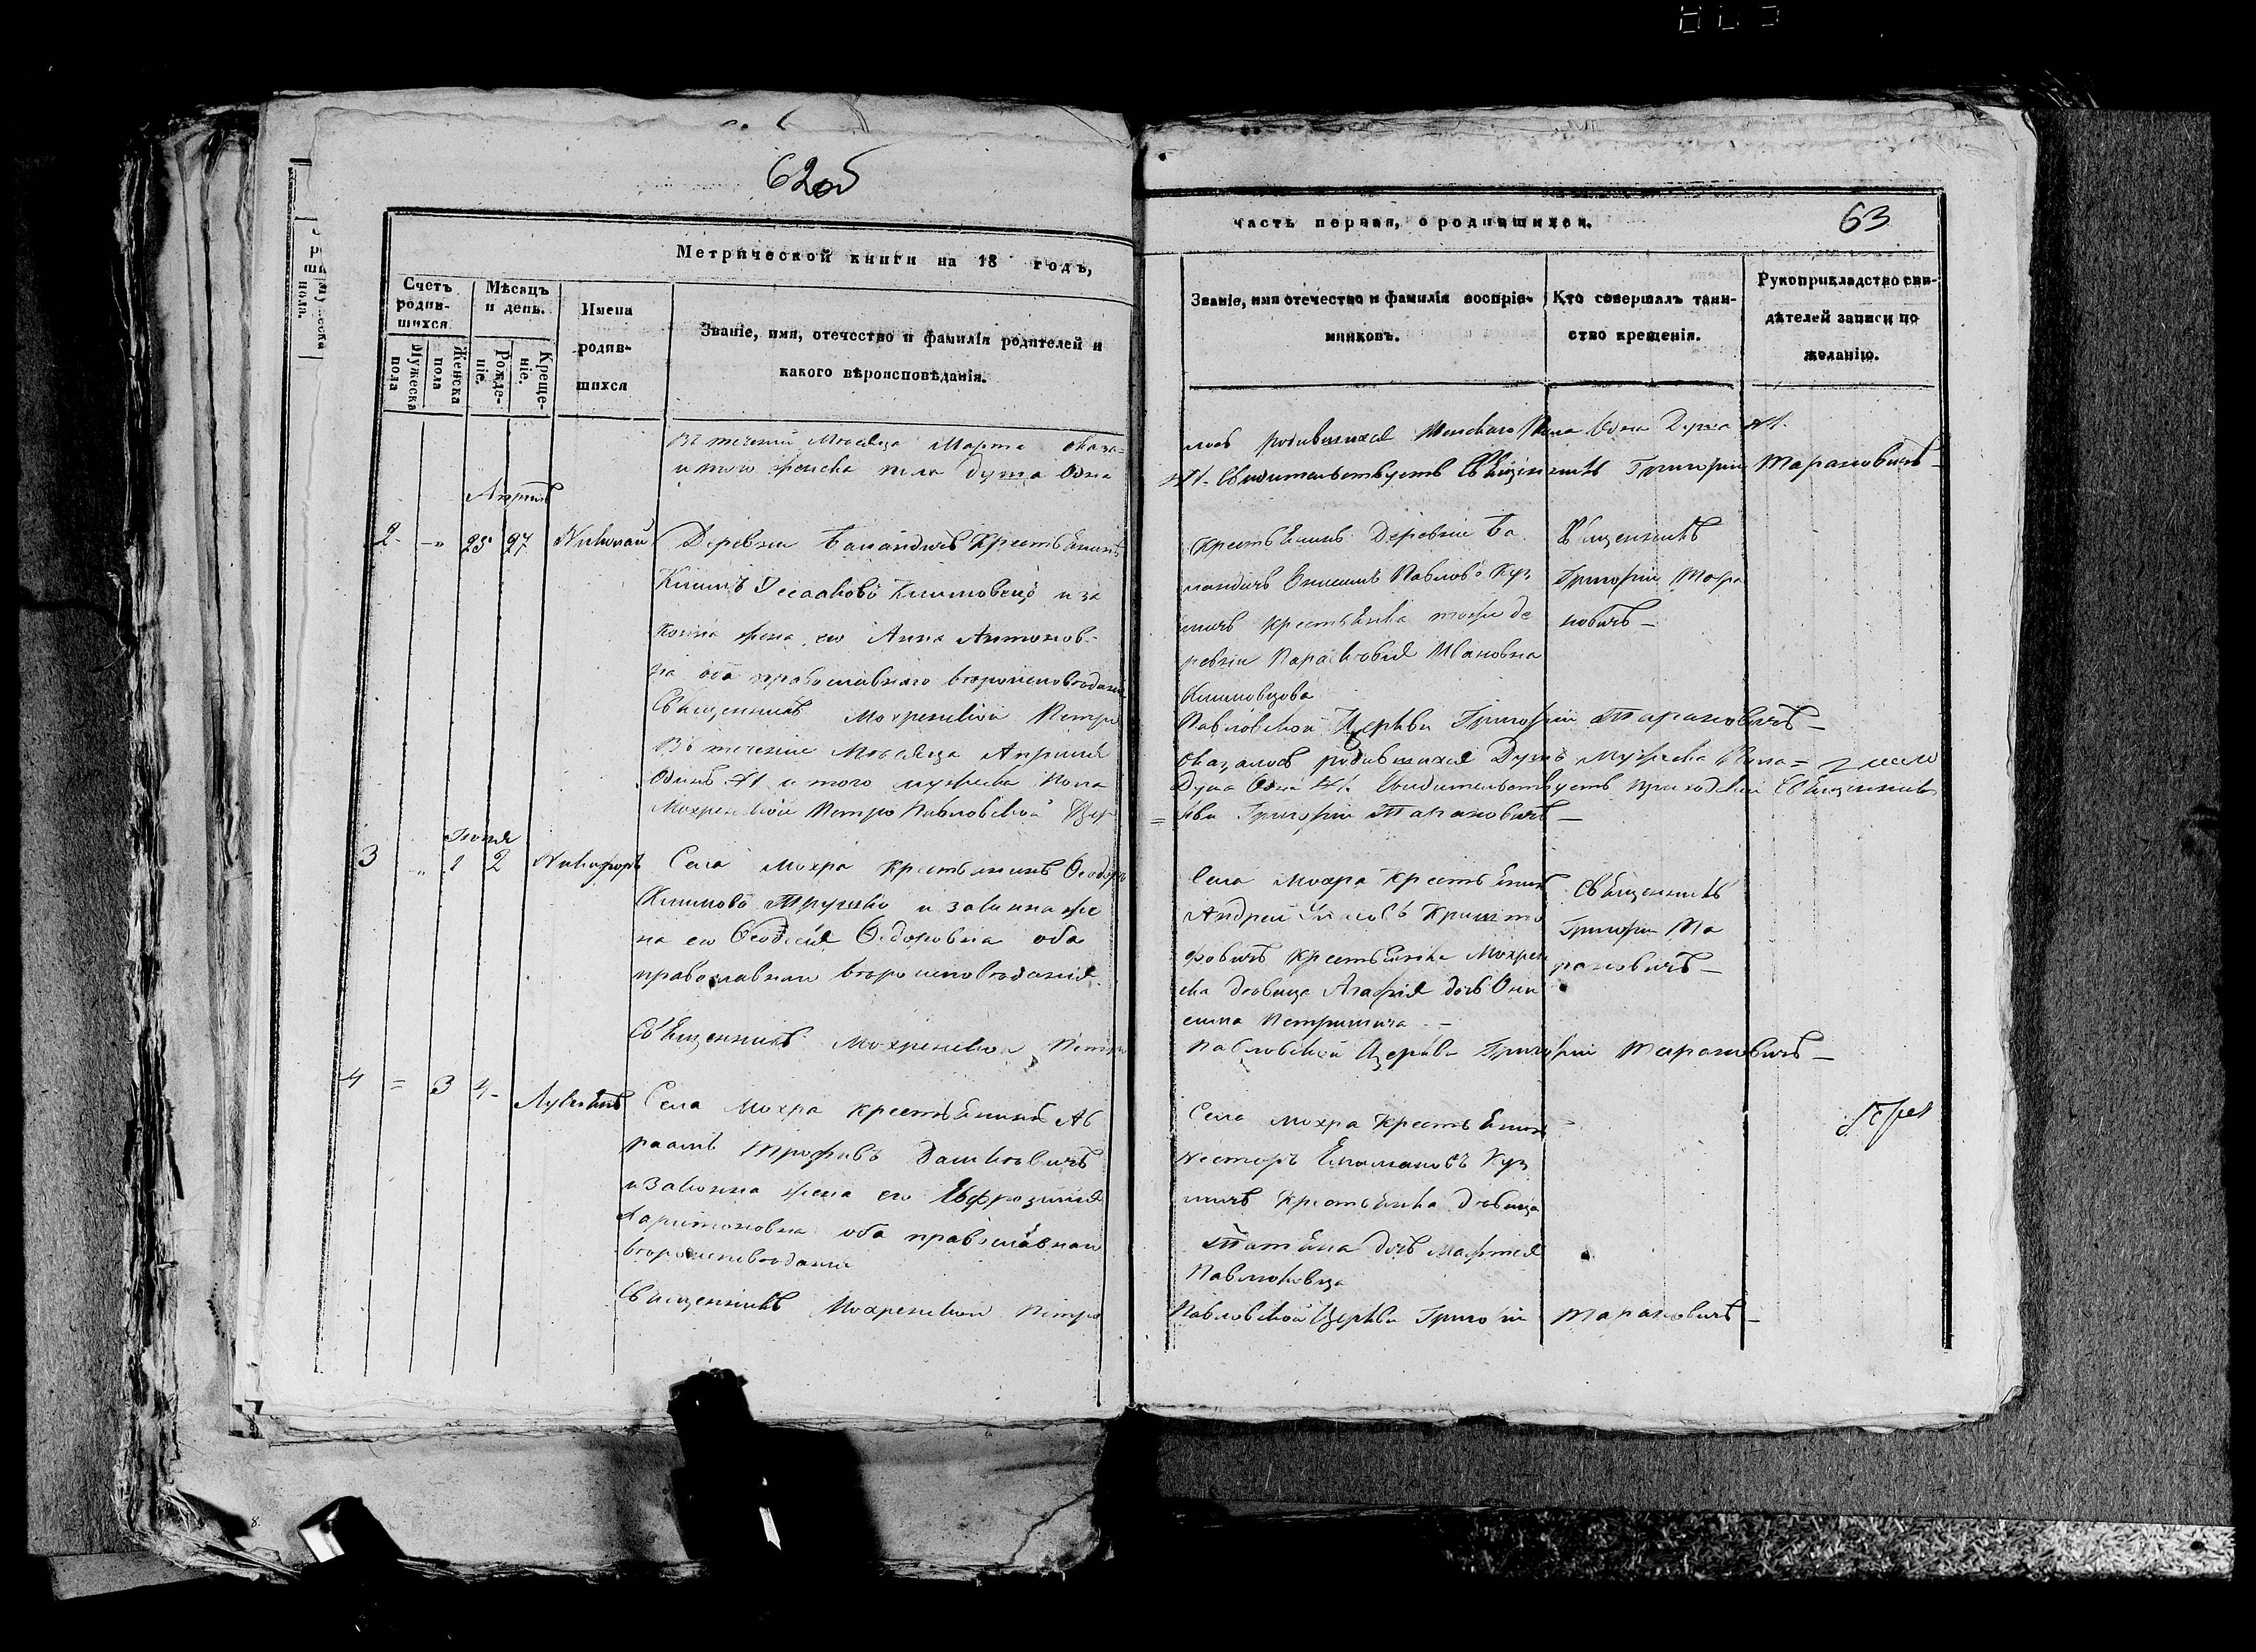 62об
Метрической книги на 18 годъ,
Счетъ родив-шихся
Мужеска пола
Женска пола
Мѣсяцъ и день.
Рожде-ніе.
Креще-ніе.
Имена
родив-
шихся
Званіе, имя, отечество и фамилія родителей и
какого вѣроисповѣданія.
Въ теченіи Мѣсяца Марта оказа=
и того женска пола душа одна
Апрель
2 - " 25 27 Николай
Деревни крестьянинъ
Климъ Климовецъ и за
конна жена его Анна Антонов-
на оба православнаго вѣроисповѣданія
Священникъ Мохренской Петро
Въ теченіе Мѣсяца Апрѣля
Одинъ №1 и того мужеска пола
Мохренской Петро Павловской Цер
Іюня
3 " 1 2 Никифоръ
Села Мохра крестьянинъ Ѳеодоръ
Климовъ и законна же
на его Ѳеодосія Ѳедоровна оба
православнаи вѣроисповѣданія
Священникъ Мохренской Петро
4 = 3 4- Лукіянъ
Села Мохра крестьянинъ Ав
раамъ Трофимъ
и законна жена его Ефрозинія
Харитоновна оба православнаи
вѣроисповѣданія
Священникъ Мохренской Петро
часть первая, о родившихся.
63
Званіе, имя отечество и фамилія воспріе-
мниковъ.
Кто совершалъ таин-
ство крещенія.
Рукоприкладство сви-
дѣтелей записи по
желанію.
лось родившихся Женскаго Пола Одна Душа №1.
№1. Свидительствуетъ Священникъ Григорій Тарановичъ
Крестьянинъ Деревни
Павловъ Куз
мичъ крестьянка тойже де
ревни Парасковія Ивановна
Климовцова
Священникъ
Григорій Тара
новичъ -
Павловской Церкви Григорій Тарановичъ -
оказалось родившихся Душъ Мужеска Пола=
Душа Одна №1. Свидительствуетъ приходскій Священникъ
= кви Григорій Тарановичъ -
Села Мохра крестьянинъ
Андрей Кришто
фовичъ крестьянка Мохрен
ска дѣвица Агафія дочь Они
сима
Священникъ
Григорій Та
рановичъ -
Павловской Церкви Григорій Тарановичъ -
Села Мохра крестьянинъ
Нестеръ Куз
мичъ крестьянка дѣвица
Татьяна дочь
Павлюковца
Павловской Церкви Григорій Тарановичъ -